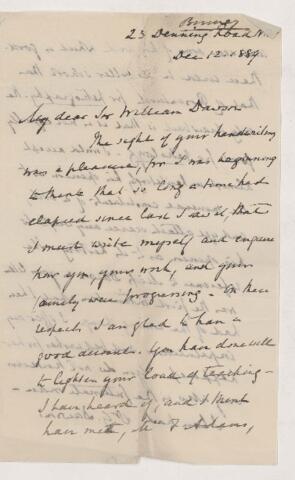 Binney
23 Denning Road N.
Dec 12 1889
My dear Sir William Dawson
The sight of your handwriting
was a pleasure, for I was beginning
to think that so long a time had
elapsed since last I saw it, that
I must write myself and enquire
how you, your work, and your
family were progressing. On these
respects I am glad to have a
good account. You have done well
to lighten your load of teaching -
I have heard of, and I think
have met, Mr F Adams,